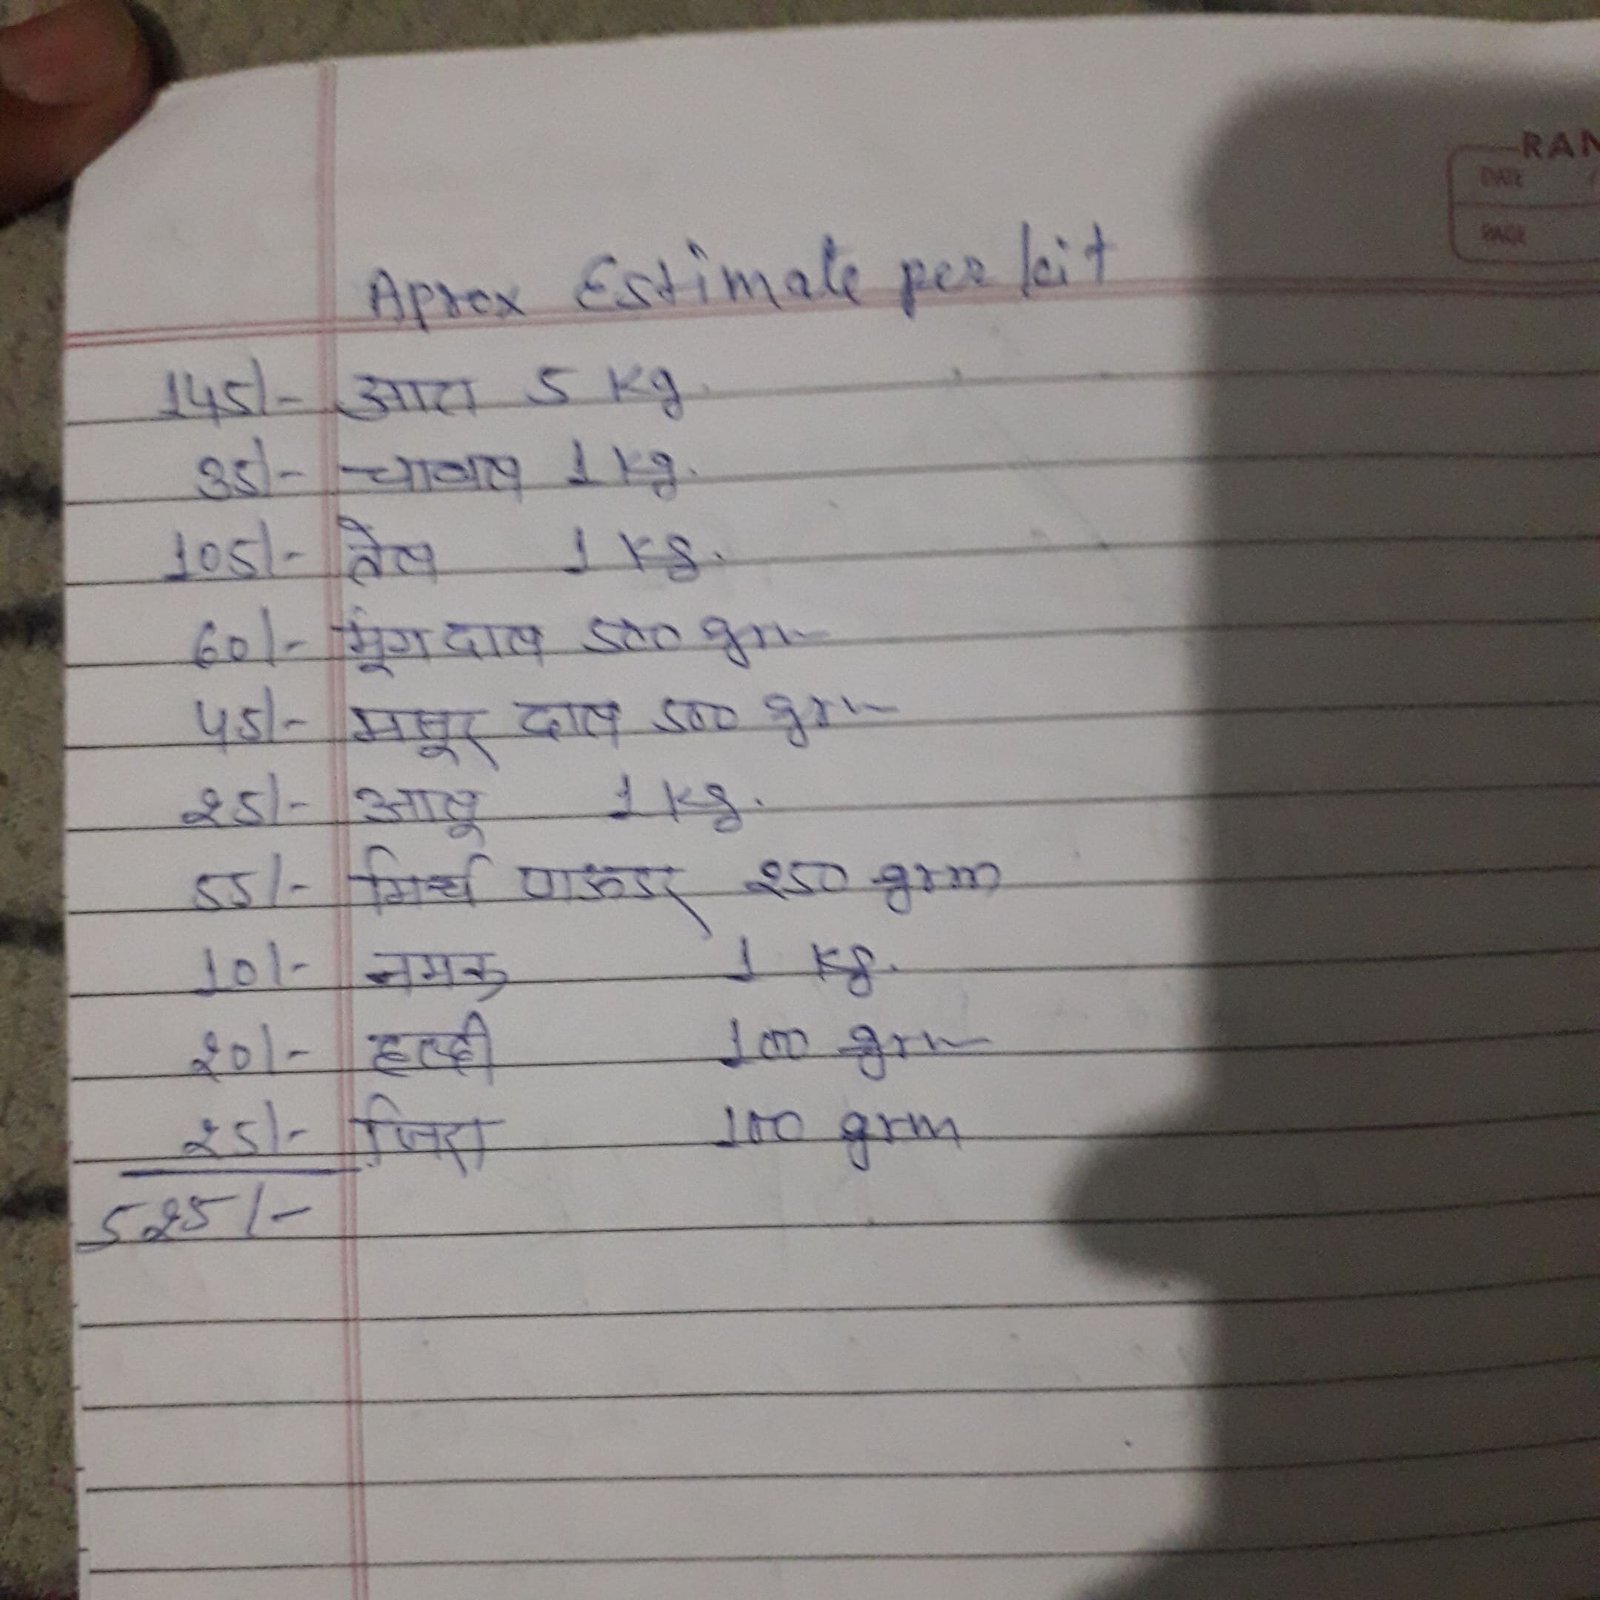 RAN
DATE
PAGE
Aprox Estimate per kit
145/- आटा 5 Kg.
35/- चावल 1 Kg.
105/- तेल 1 Kg.
60/- मूंग दाल 500 grm
45/- मसूर दाल 500 grm
25/- आलू 1 Kg.
55/- मिर्च पाऊडर 250 grm
10/- नमक 1 Kg.
20/- हल्दी 100 grm
25/- जिरा 100 grm
525/-